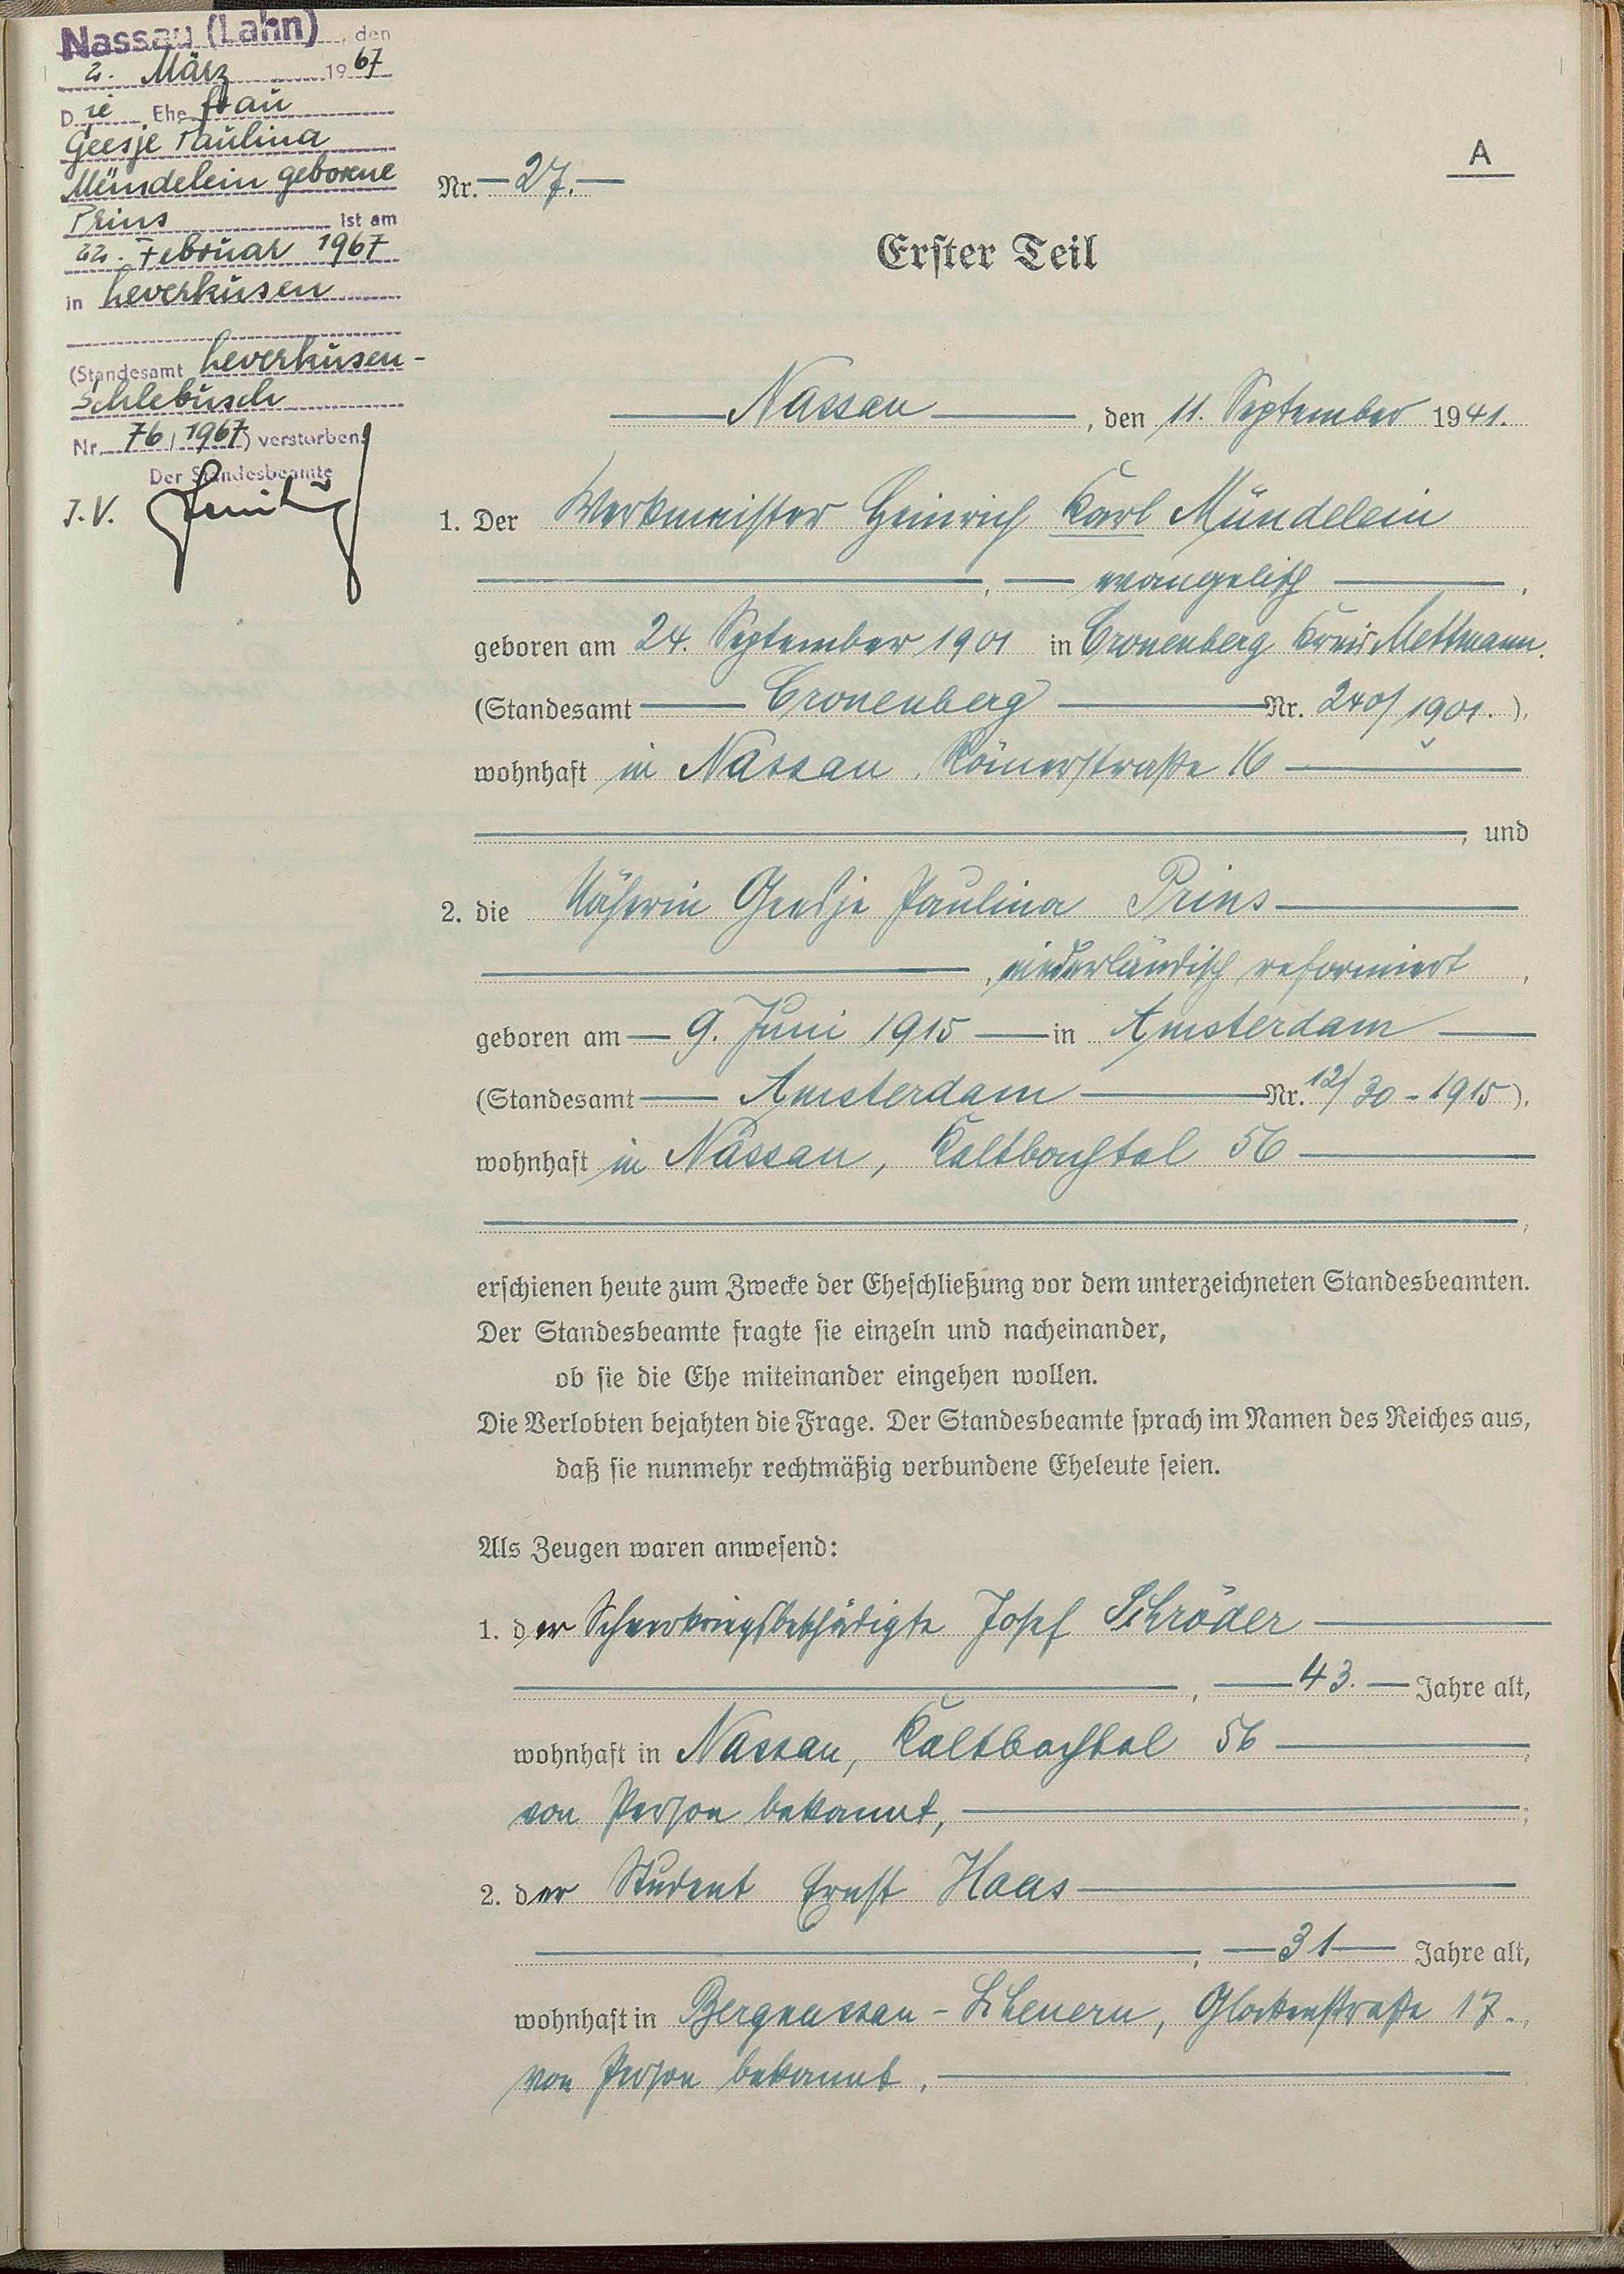 Nassau (Lahn), den
2. März 1967
Die Ehefrau
Geesje Paulina
Mündelein geborene
Prins ist am
22. Februar 1967
in Leverkusen
(Standesamt Leverkusen-
Schlebusch
Nr. 76/1967) verstorben.
Der Standesbeamte
J.V.
A
Nr. 27.
Erster Teil
Nassau, den 11. September 1941.
1. Der Werkmeister Heinrich Karl Mündelein
, evangelisch,
geboren am 24. September 1901 in Cronenberg Kreis Mettmann.
(Standesamt Cronenberg Nr. 240/1901.),
wohnhaft in Nassau, Römerstraße 16
, und
2. die Näherin Geesje Paulina Prins
, niederländisch reformiert,
geboren am 9. Juni 1915 in Amsterdam
(Standesamt Amsterdam Nr. 12/30-1915),
wohnhaft in Nassau, Kaltbachtal 56
,
erschienen heute zum Zwecke der Eheschließung vor dem unterzeichneten Standesbeamten.
Der Standesbeamte fragte sie einzeln und nacheinander,
ob sie die Ehe miteinander eingehen wollen.
Die Verlobten bejahten die Frage. Der Standesbeamte sprach im Namen des Reiches aus,
daß sie nunmehr rechtmäßig verbundene Eheleute seien.
Als Zeugen waren anwesend:
1. der Schwerkriegsbeschädigte Josef Schröder
, 43. Jahre alt,
wohnhaft in Nassau, Kaltbachtal 56,
von Person bekannt,;
2. der Student Ernst Haas
, 31 Jahre alt,
wohnhaft in Bergnassau-Scheuern, Glockenstraße 17.,
von Person bekannt.